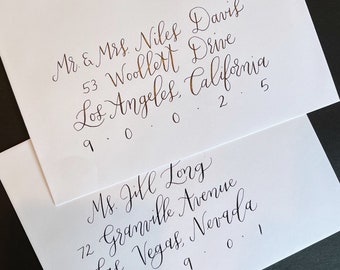 Mr. & Mrs. Niles Davis
53 Woollett Drive
Los Angeles, California
9 · 0 · 0 · 2 · 5
Ms. Jill Long
72 Granville Avenue
Las Vegas, Nevada
9 · 0 · 1